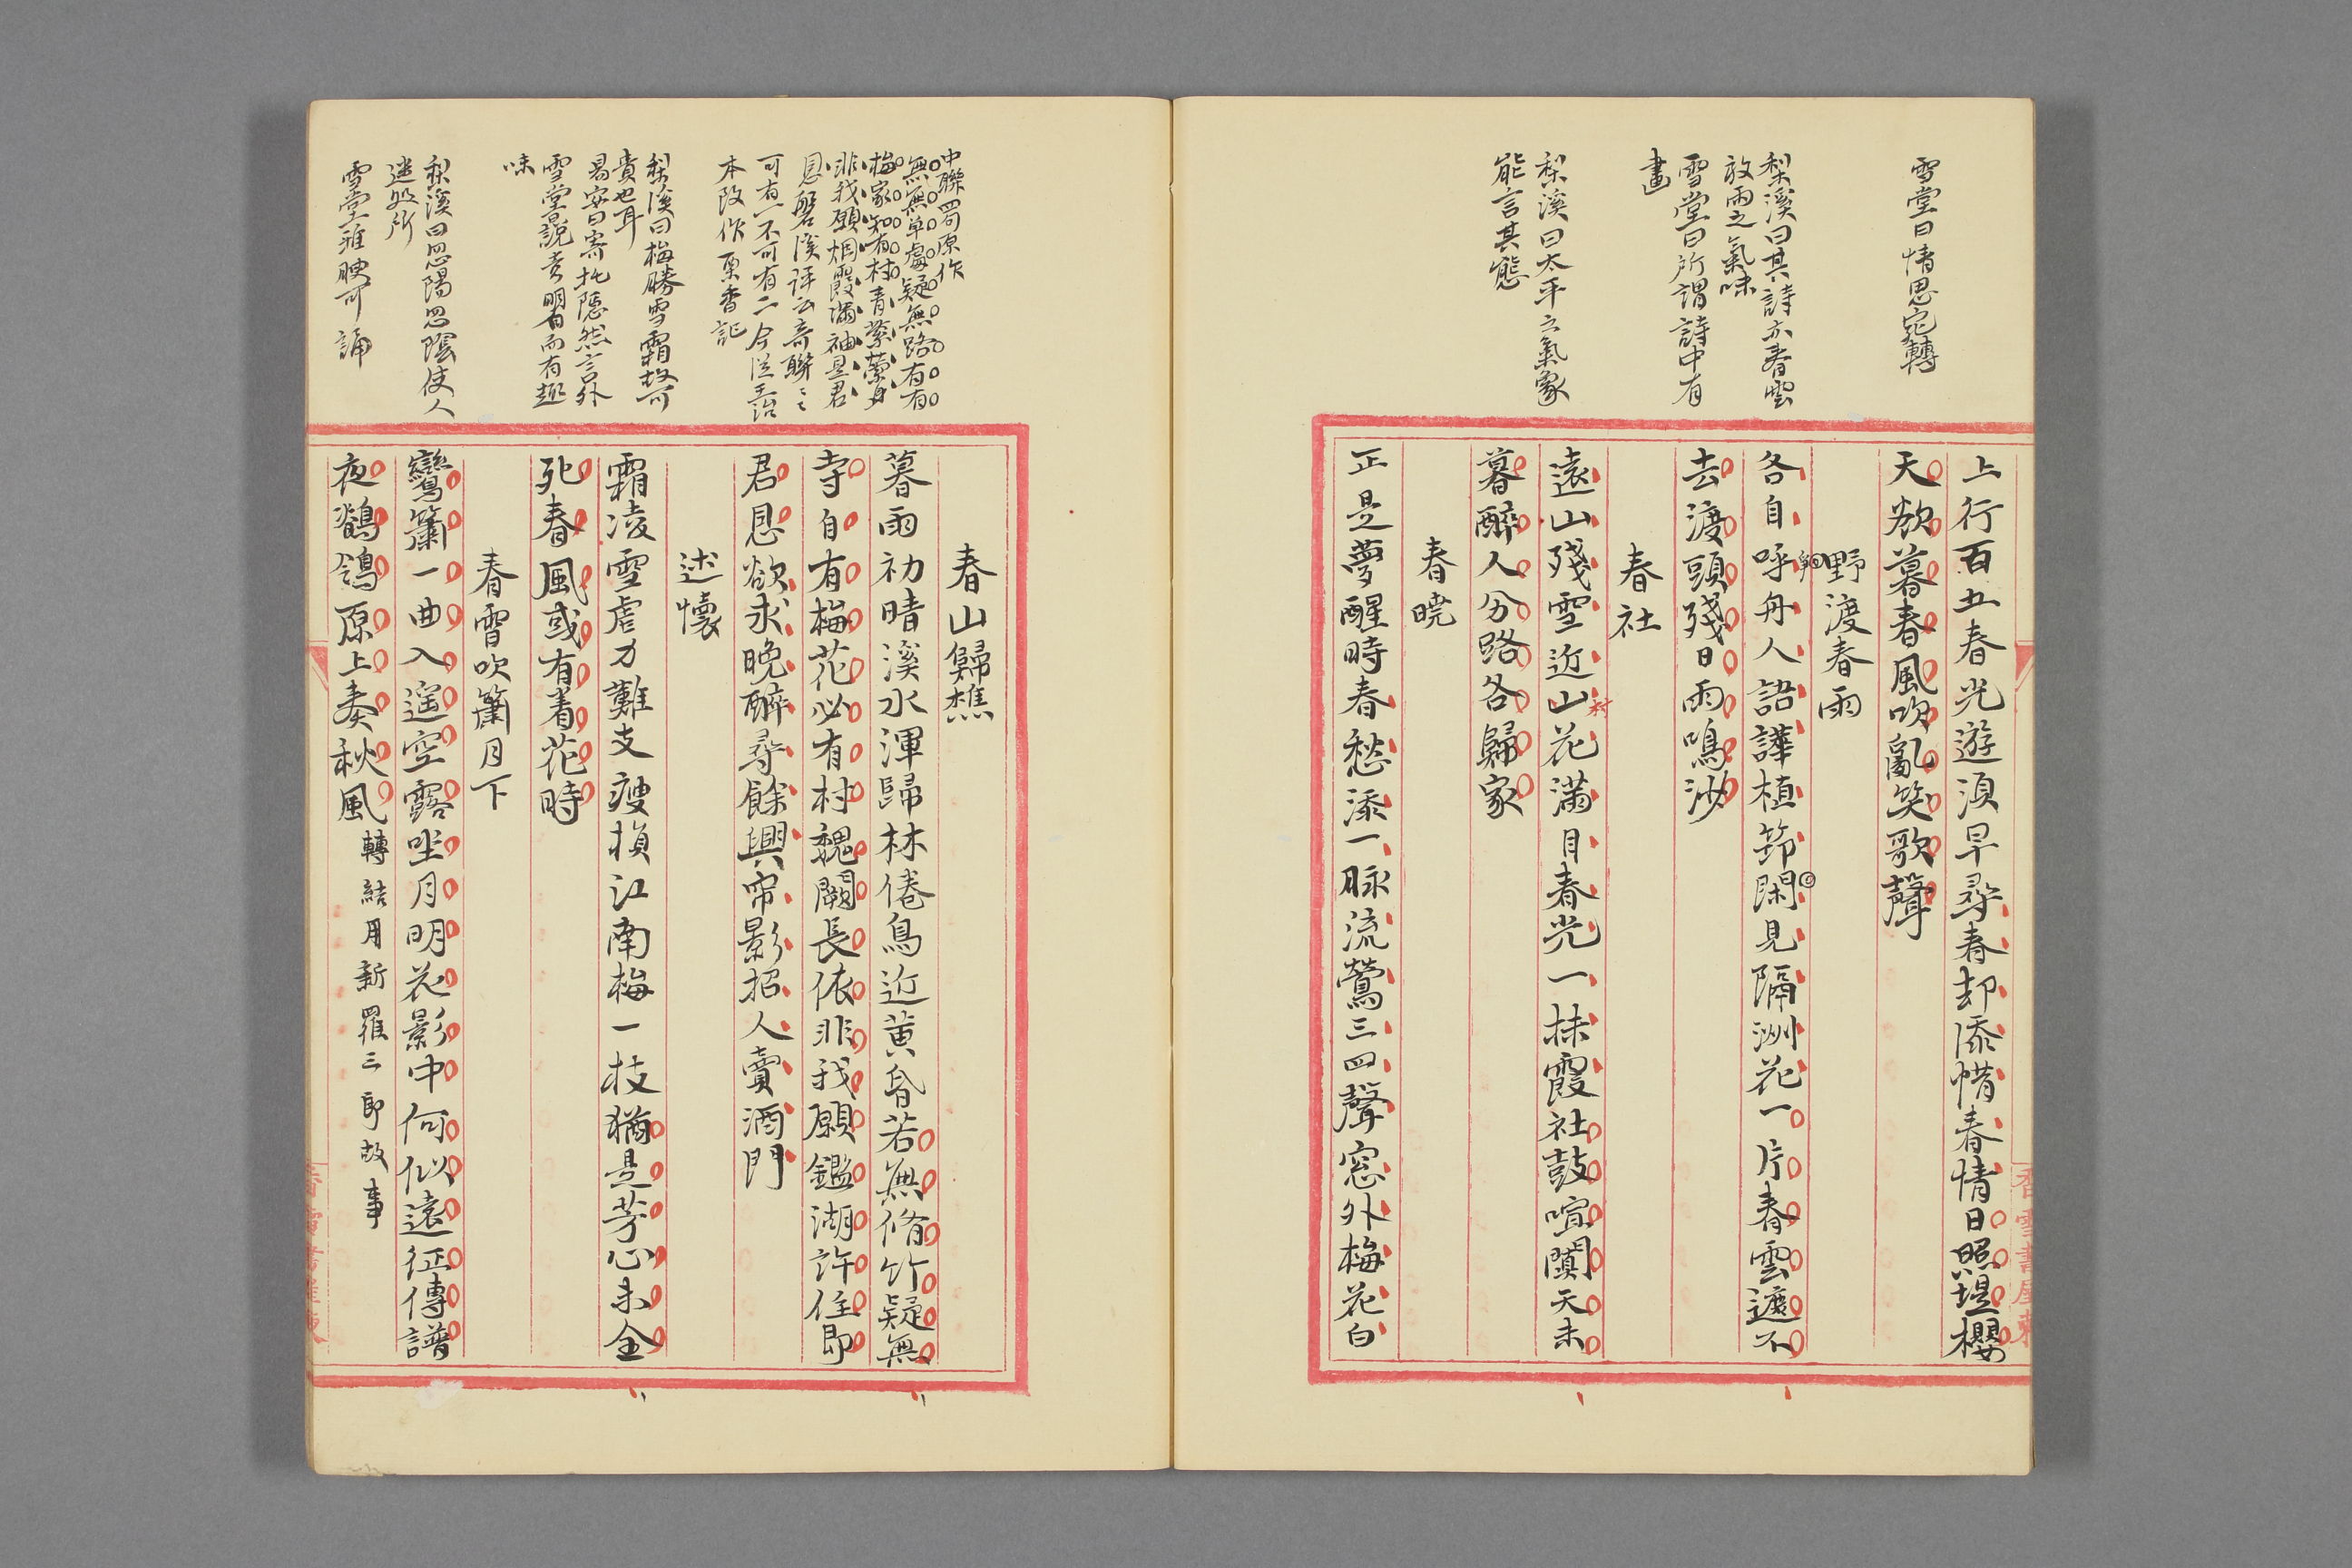 雪堂曰情思宛轉
梨溪曰其詩亦春雲
放雨之氣味
雪堂曰所謂詩中有
畫
梨溪曰太平之氣象
能言其態
上行百五春光遊須早尋春却添惜春情日照堤櫻
天欲暮春風吹亂笑歌聲
野渡春雨
各自呼舟人語譁植節閑見隔洲花一片春雲遮不
去渡頭殘日雨鳴沙
春社
遠山殘雪近山花滿目春光一抹霞社鼓喧闐天未
村
暮醉人分路各歸家
春曉
正是夢醒時春愁添一脉流鶯三四聲窓外梅花白
香雪書屋
中聯罸原作
無無単處疑無路有有
梅家知有村青蘂縈身
非我願烟霞滿袖是君
恩磐溪評云奇聯々々
可有一不可有二今從玉治
本改作原香記
梨溪曰梅勝雪霜故可
貴也耳
易安曰寄托隱然言外
雪堂說意明白而有趣
味
梨溪曰忽陽忽陰使人
迷処所
雪堂雅腴可誦
春山歸樵
暮雨初晴溪水渾歸林倦鳥近黄昏若無脩竹疑無
寺自有梅花必有村魏闕長依非我願鑑湖許住即
君恩欲求晩醉尋餘興帘影招人賣酒門
述懷
霜凌雪虐力難支瘦損江南梅一枝猶是芳心未全
死春風或有着花時
春宵吹簫月下
鸞簫一曲入遥空露坐月明花影中何似遠征傳譜
夜鶺鴒原上奏秋風 轉結用新羅三郎故事